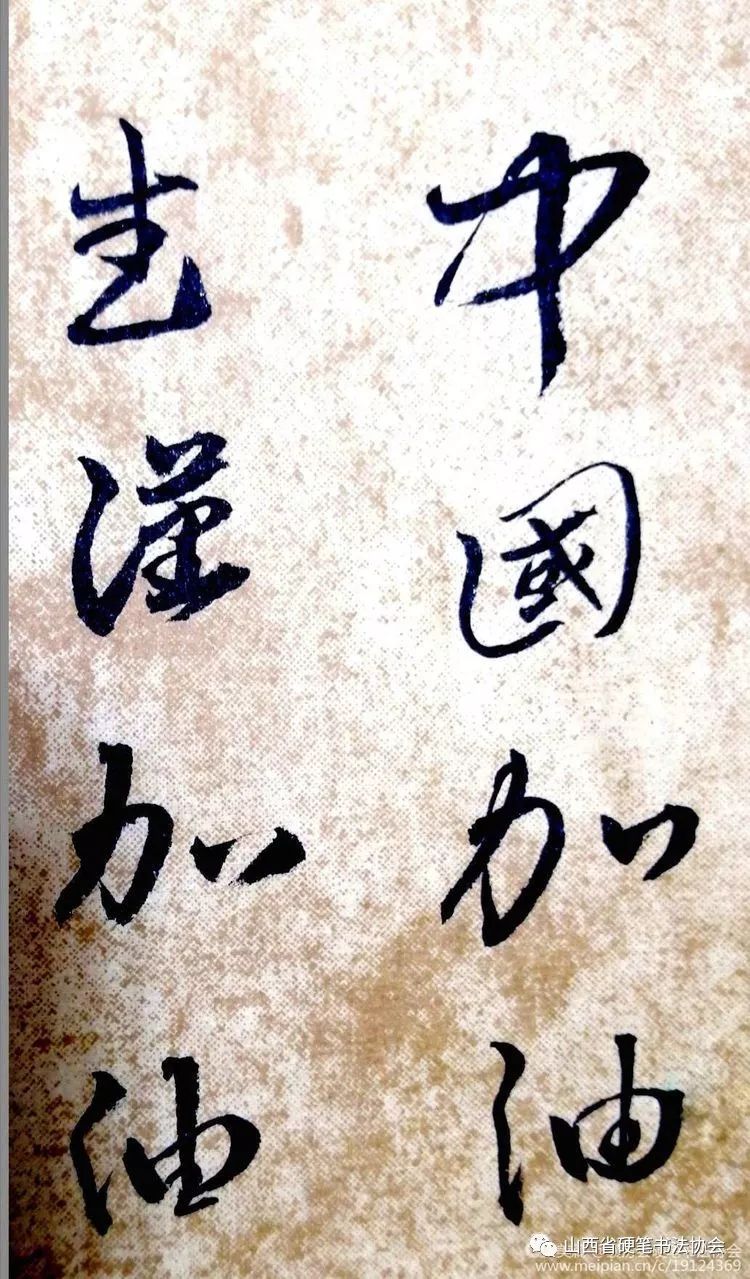 中國加油
武漢加油
山西省硬笔书法协会
www.meipian.cn/c/19124369